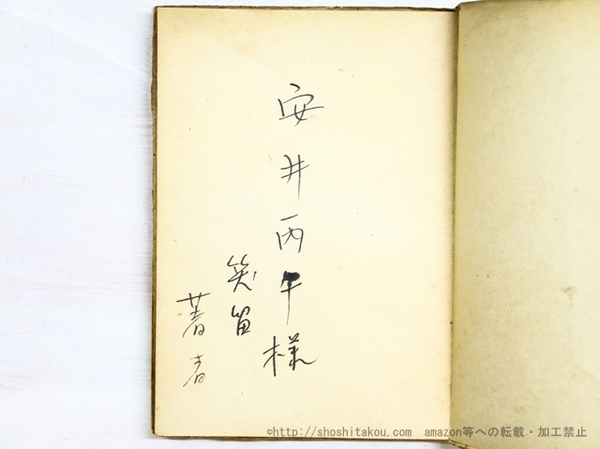 安井丙午様
笑留
著者
©http://shoshitakou.com amazon等への転載・加工禁止